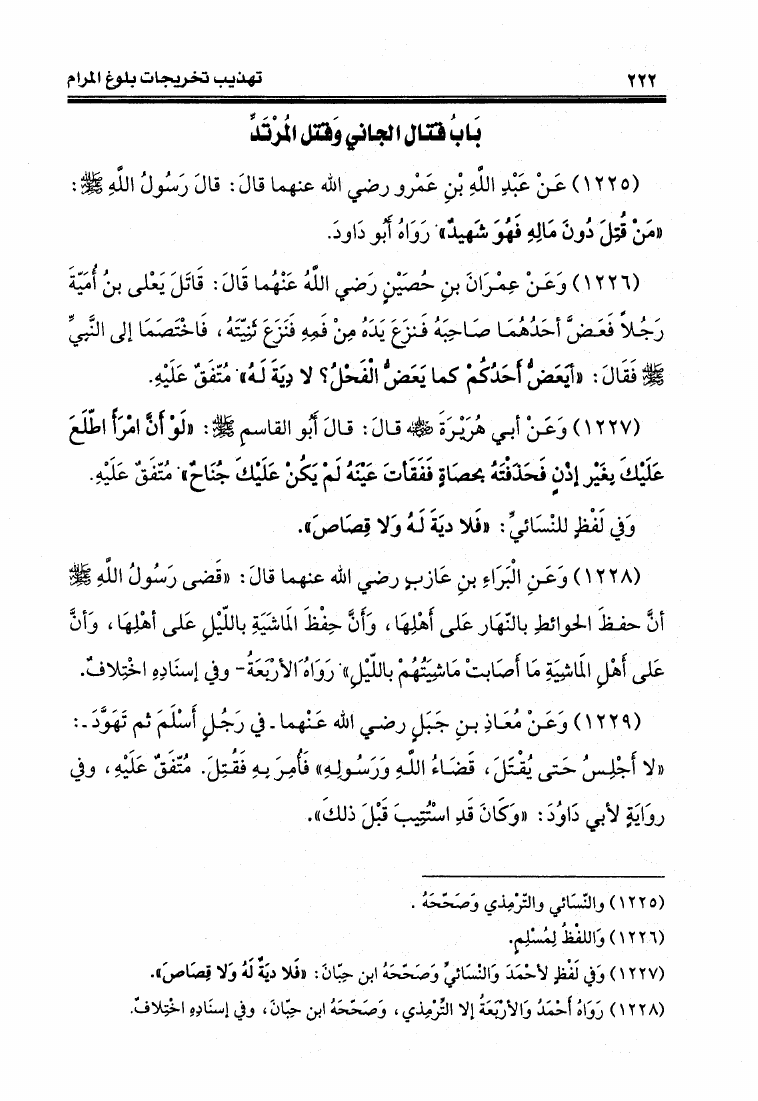 ٢٢٢ تهذيب تخريجات بلوغ المرام
بَابُ قتال الجاني وَقتل المُرْتَدِّ
(١٢٢٥) عَنْ عَبْدِ اللَّهِ بْنِ عَمْرو رضي الله عنهما قالَ: قالَ رَسُولُ اللَّهِ ﷺ:
«مَنْ قُتِلَ دُونَ مَالِهِ فَهُوَ شَهيدٌ» رَوَاهُ أَبُو دَاودَ.
(١٢٢٦) وَعَنْ عِمْرَانَ بنِ حُصَيْنٍ رَضي اللَّهُ عَنْهُما قَالَ: قَاتَلَ يَعْلى بنُ أُمَيّةَ
رَجُلاً فَعَضَّ أَحَدُهُمَا صَاحِبَهُ فَنزَعَ يَدَهُ مِنْ فَمِهِ فَنَزَعَ ثَنِيّتَهُ، فَاخْتَصَمَا إلى النَّبيِّ
ﷺ فَقَالَ: «أَيَعَضُّ أَحَدُكُمْ كما يَعَضُّ الْفَحْلُ؟ لا دِيَةَ لَهُ» مُتّفَقٌ عَلَيْهِ.
(١٢٢٧) وَعَنْ أبي هُرَيْرَةَ ﷺ قالَ: قالَ أَبُو القاسمِ ﷺ: «لَوْ أَنَّ امْرَأً اطّلَعَ
عَلَيْكَ بِغَيْرِ إذْنٍ فَحَذَفْتَهُ بحصَاةٍ فَفَقَأتَ عَيْنَهُ لَمْ يَكُنْ عَلَيْكَ جُنَاحٌ» مُتّفَقٌ عَلَيْهِ.
وَفي لَفْظٍ للنّسَائيِّ: «فَلا ديَةَ لَهُ وَلا قِصَاصَ».
(١٢٢٨) وَعَنِ الْبَرَاءِ بنِ عَازبٍ رضي الله عنهما قالَ: «قَضى رَسُولُ اللَّهِ ﷺ
أنَّ حفظَ الحوائطِ بالنّهَار عَلى أَهْلِهَا، وَأَنَّ حِفْظَ المَاشيَةِ باللّيْلِ عَلى أهْلِهَا، وَأنَّ
عَلى أَهْلِ المَاشِيَةِ مَا أَصَابتْ مَاشيَتُهُمْ باللّيْلِ» رَوَاهُ الأرْبَعَةُ- وفي إسنَادِهِ اخْتِلافٌ.
(١٢٢٩) وَعَنْ مُعَاذِ بنِ جَبَلٍ رضي الله عَنْهما ـ في رَجُلٍ أَسْلَمَ ثم تَهَوَّدَ ـ:
«لا أَجْلِسُ حَتى يُقْتَلَ، قَضَاءُ اللَّهِ وَرَسُولِهِ» فَأُمِرَ بهِ فَقُتِلَ. مُتّفَقٌ عَلَيْهِ، وفي
روايَةٍ لأبي دَاوُدَ: «وَكَانَ قَدِ اسْتُتِيبَ قَبْلَ ذلكَ».
(١٢٢٥) والنّسَائي والتّرْمذي وَصَحّحَهُ .
(١٢٢٦) وَاللفْظُ لِمُسْلِمٍ.
(١٢٢٧) وَفي لَفْظٍ لأحْمَدَ وَالنّسَائيِّ وَصَحّحَهُ ابن حِبّانَ: «فَلا ديَةٌ لَهُ وَلا قِصَاصَ».
(١٢٢٨) رَوَاهُ أَحْمَدُ وَالأرْبَعَةُ إلا التِّرْمِذي، وَصَحّحَهُ ابن حِبّانَ، وفي إسنَادِهِ اخْتلافٌ.